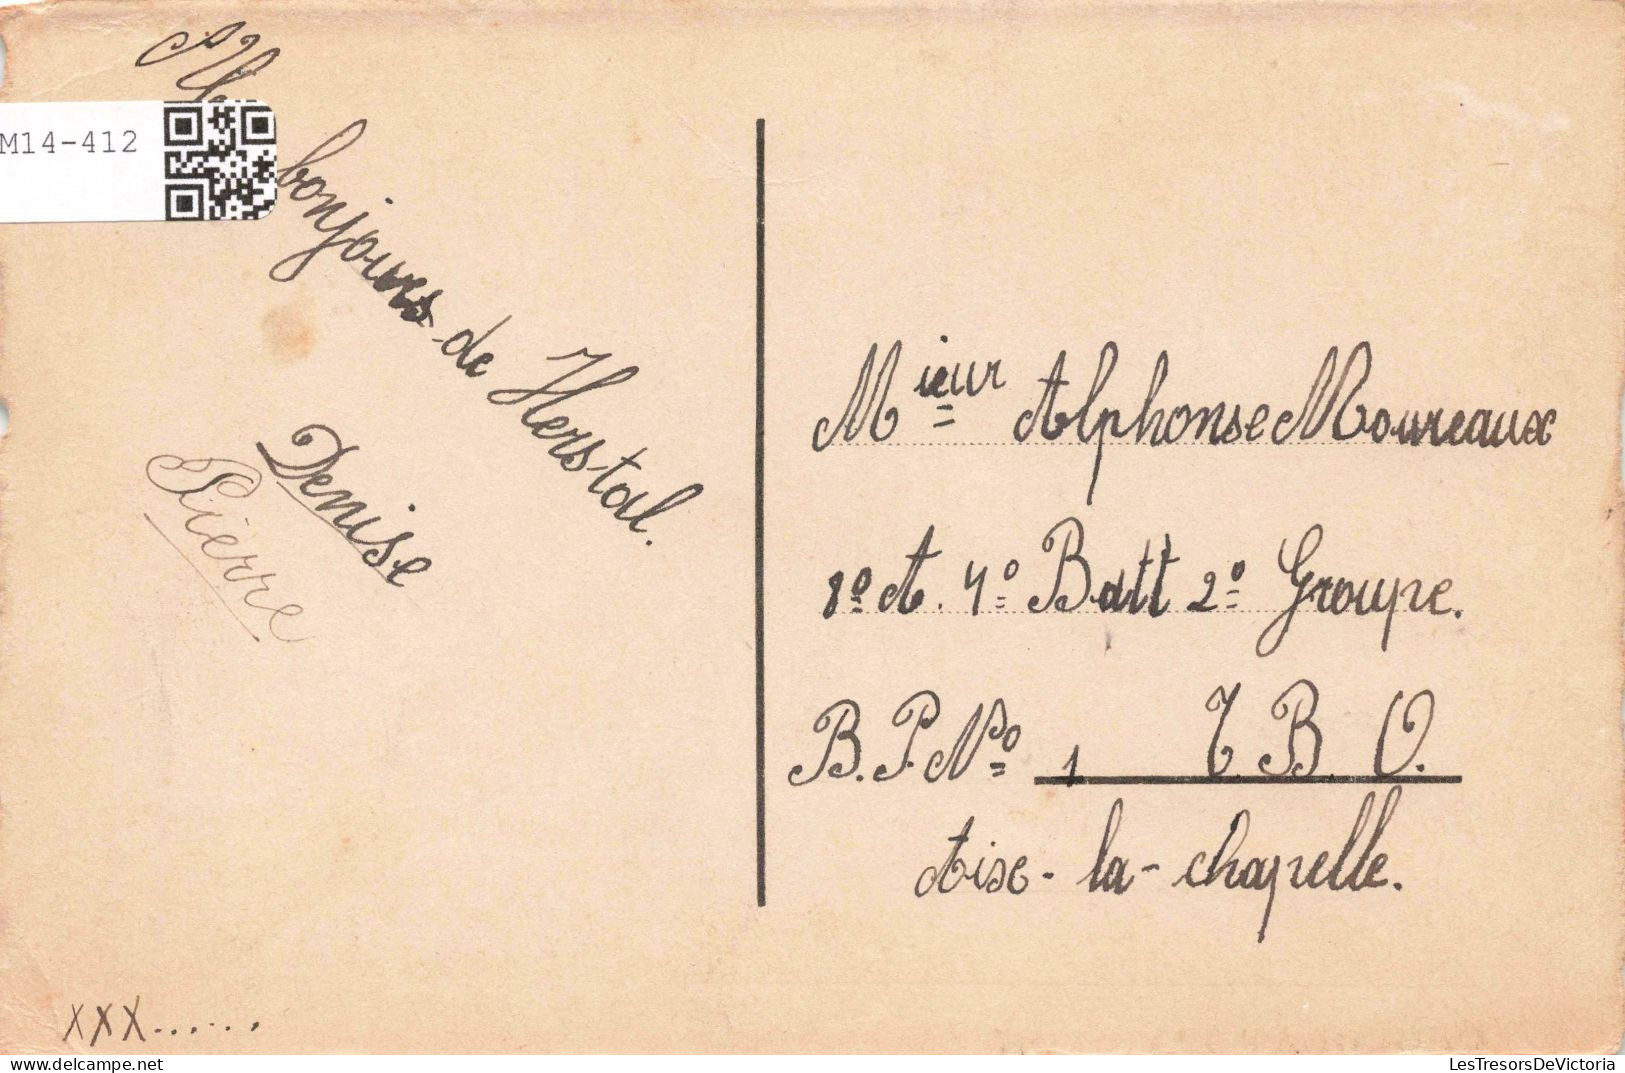 M14-412
bonjours de Herstal.
Denise
Pierre
XXX......
Mieur Alphonse Moureaux
8º A. 4º Batt 2º Groupe.
B.P. Nº 1 T.B.O.
Aix-la-chapelle.
LesTresorsDeVictoria